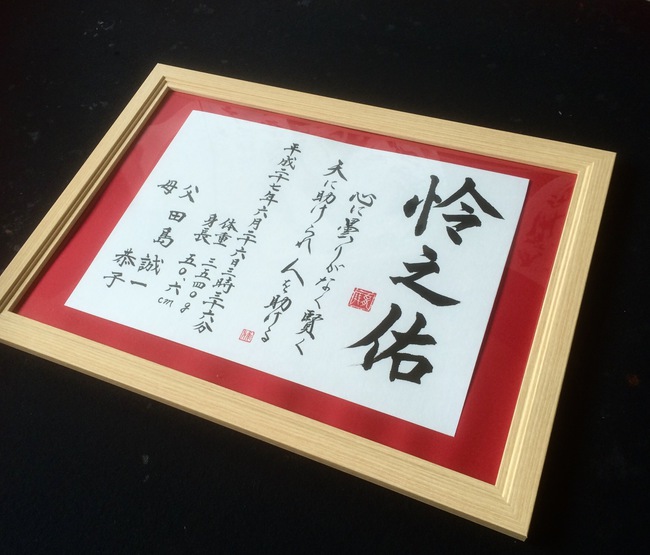 怜之佑
心に曇りがなく賢く
天に助けられ 人を助ける
平成二十七年六月二十六日三時三十六分
体重 三五四〇g
身長 五〇.六cm
父 田島 誠一
母 恭子